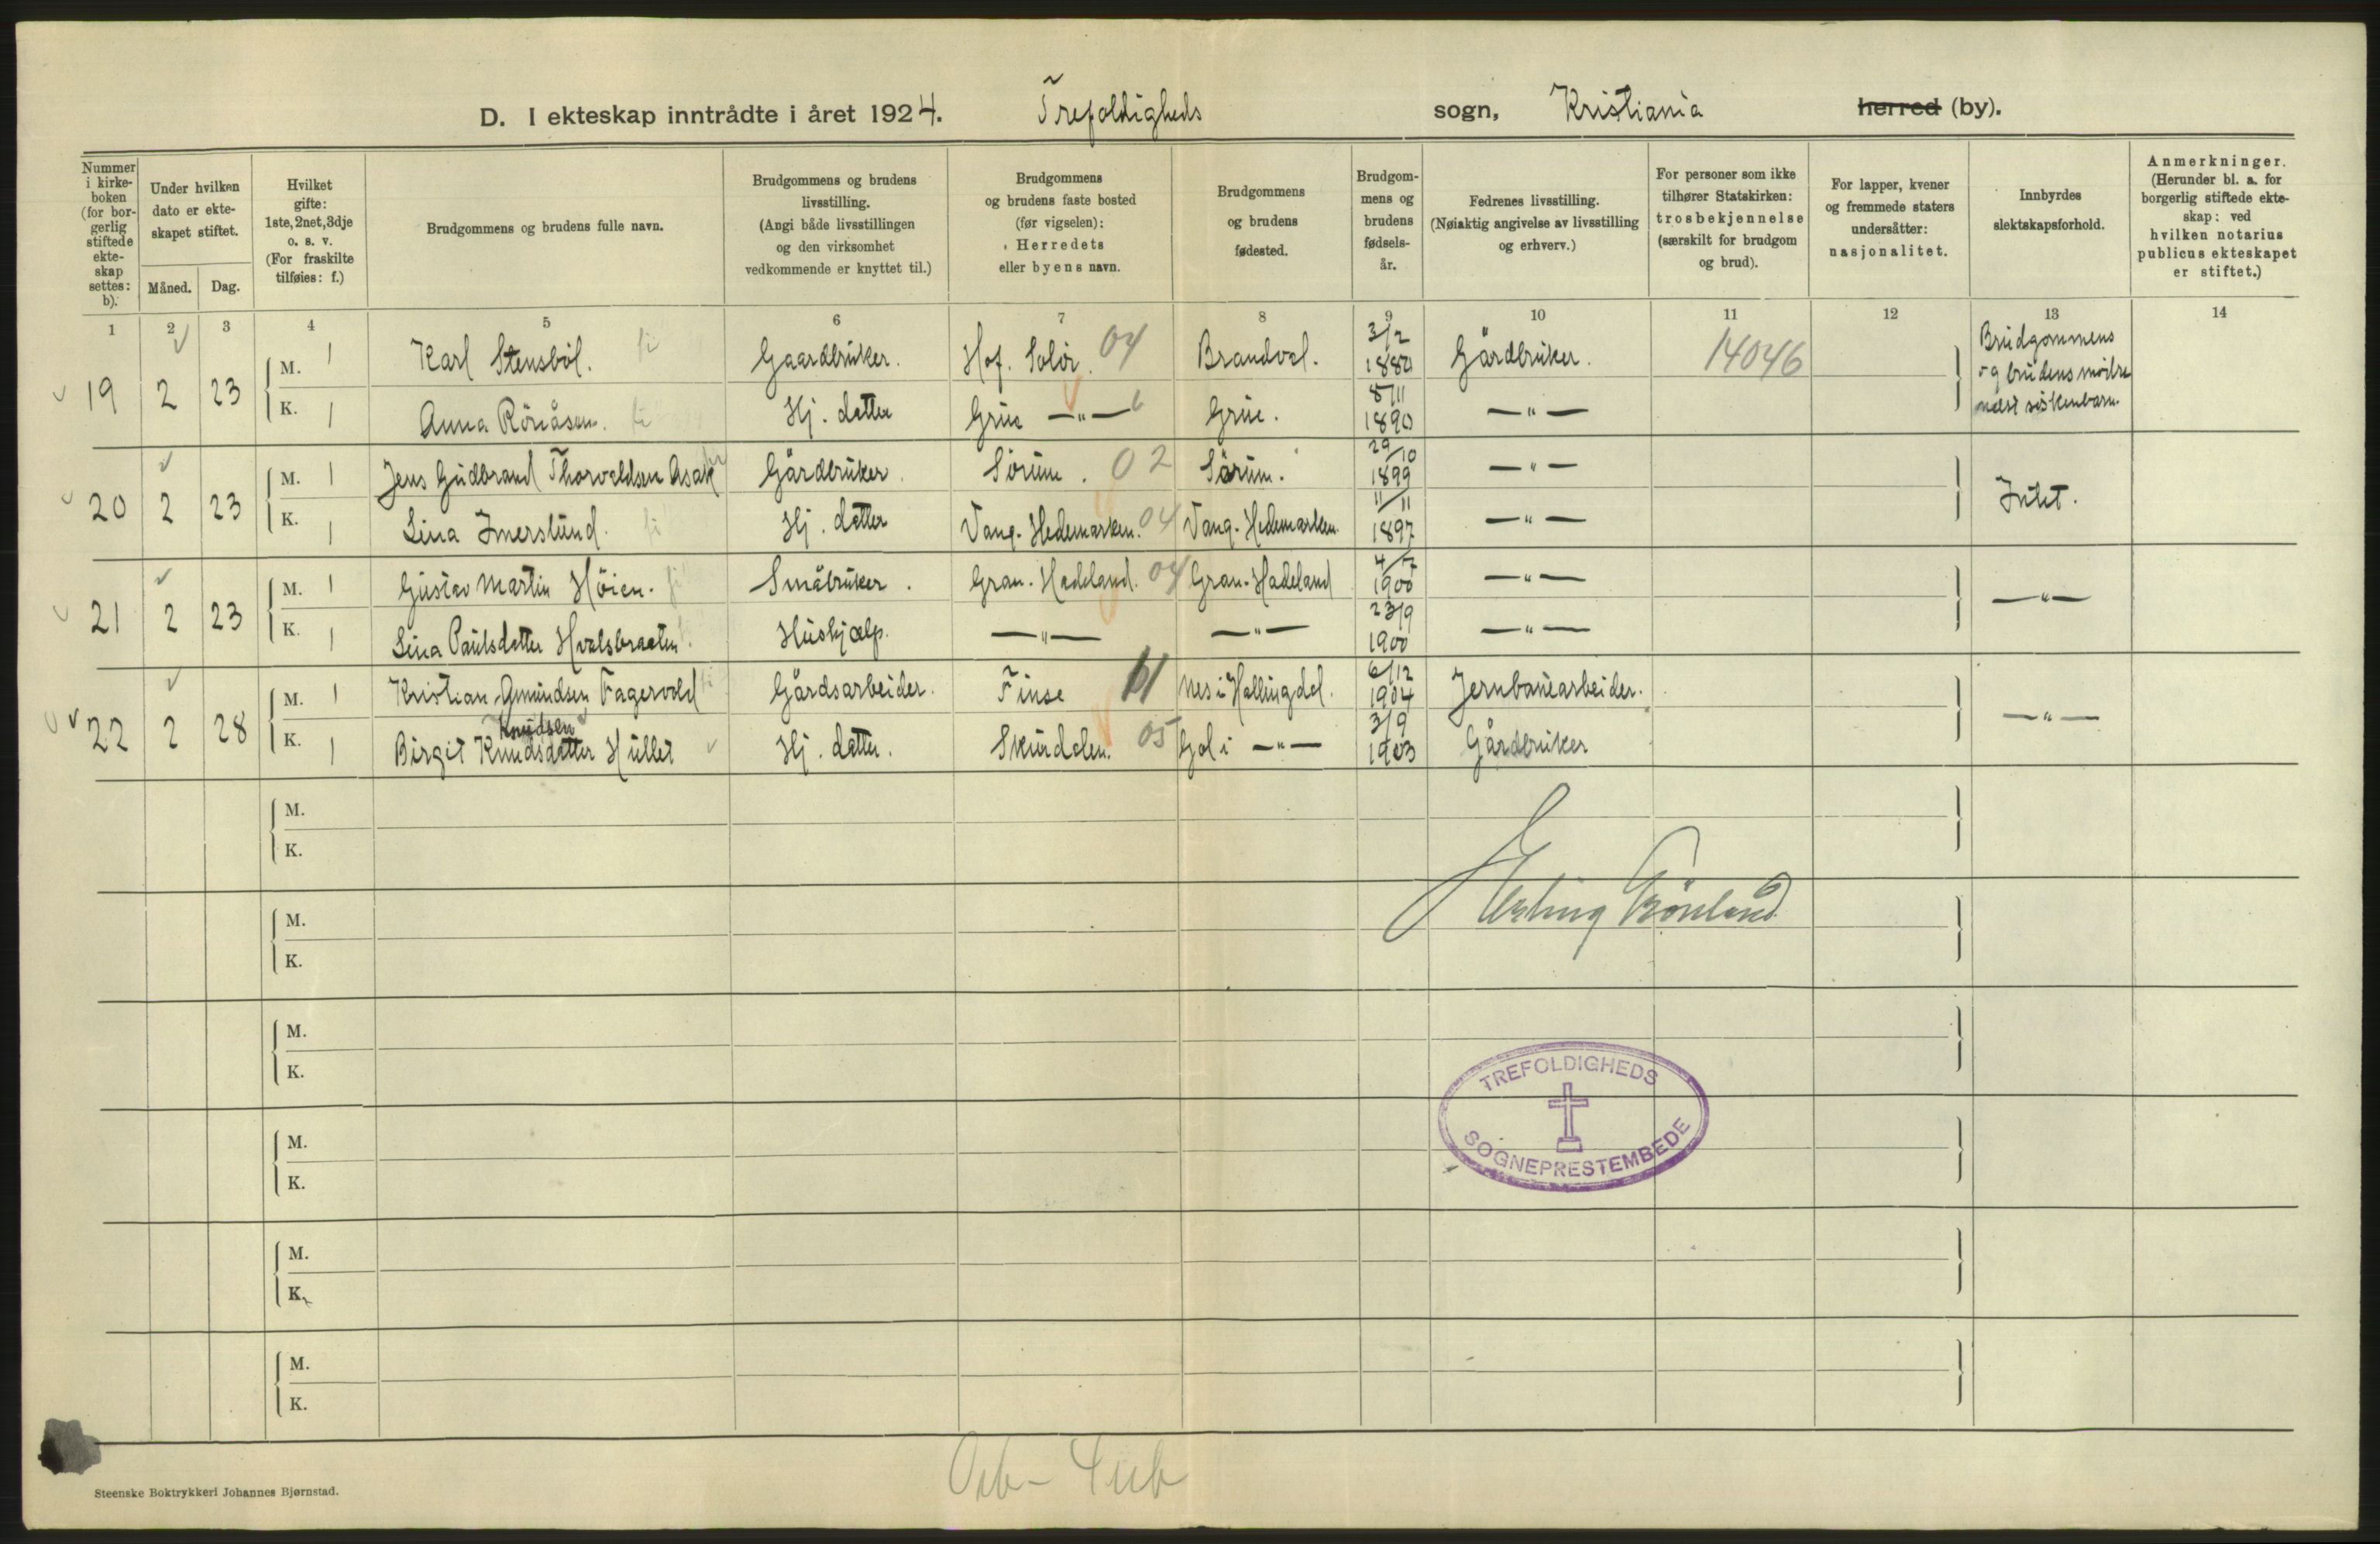 D. I ekteskap inntrådte i året 1924. Trefoldigheds sogn, Kristiania herred (by).
Nummer i kirke-boken (for bor-gerlig stiftede ekte-skap settes: b).
Under hvilken dato er ekte-skapet stiftet.
Måned. Dag.
Hvilket gifte: 1ste, 2net, 3dje o. s. v. (For fraskilte tilføies: f.)
Brudgommens og brudens fulle navn.
Brudgommens og brudens livsstilling. (Angi både livsstillingen og den virksomhet vedkommende er knyttet til.)
Brudgommens og brudens faste bosted (før vigselen): Herredets eller byens navn.
Brudgommens og brudens fødested.
Brudgom-mens og brudens fødsels-år.
Fedrenes livsstilling. (Nøiaktig angivelse av livsstilling og erhverv.)
For personer som ikke tilhører Statskirken: trosbekjennelse (særskilt for brudgom og brud).
For lapper, kvener og fremmede staters undersåtter: nasjonalitet.
Innbyrdes slektskapsforhold.
Anmerkninger. (Herunder bl. a. for borgerlig stiftede ekte-skap: ved hvilken notarius publicus ekteskapet er stiftet.)
1 2 3 4 5 6 7 8 9 10 11 12 13 14
19 2 23 M. 1 Karl Stensböl. Gaardbruker. Hof. Solör. 04 Brandval. 3/2 1880 Gårdbruker. 14046 Brudgommens og brudens mödre næst söskenbarn.
K. 1 Anna Rönåsen. Hj. datter Grue —"— Grue. 8/11 1890 —"—
20 2 23 M. 1 Jens Gudbrand Thorvaldsen Asak Gårdbruker. Sörum. 02 Sörum. 29/10 1899 —"— Intet.
K. 1 Lina Imerslund. Hj. datter Vang. Hedemarken. 04 Vang. Hedemarken. 11/11 1897 —"—
21 2 23 M. 1 Gustav Martin Höien. Småbruker. Gran. Hadeland. 04 Gran. Hadeland 4/7 1900 —"— —"—
K. 1 Lina Paulsdatter Hvalsbraaten. Hushjælp. —"— —"— 23/9 1900 —"—
22 2 28 M. 1 Kristian Amundsen Fagervold Gårdsarbeider. Finse 11 Nes i Hallingdal. 6/12 1904 Jernbanearbeider. —"—
Knudsen
K. 1 Birgit Knudsdatter Hullet Hj. datter. Skurdalen. 05 Gol i —"— 3/9 1903 Gårdbruker
M.
K.
Erling Grönland
M.
K.
M.
K.
TREFOLDIGHEDS
SOGNEPRESTEMBEDE
M.
K.
M.
K.
M.
K.
Steenske Boktrykkeri Johannes Bjørnstad.